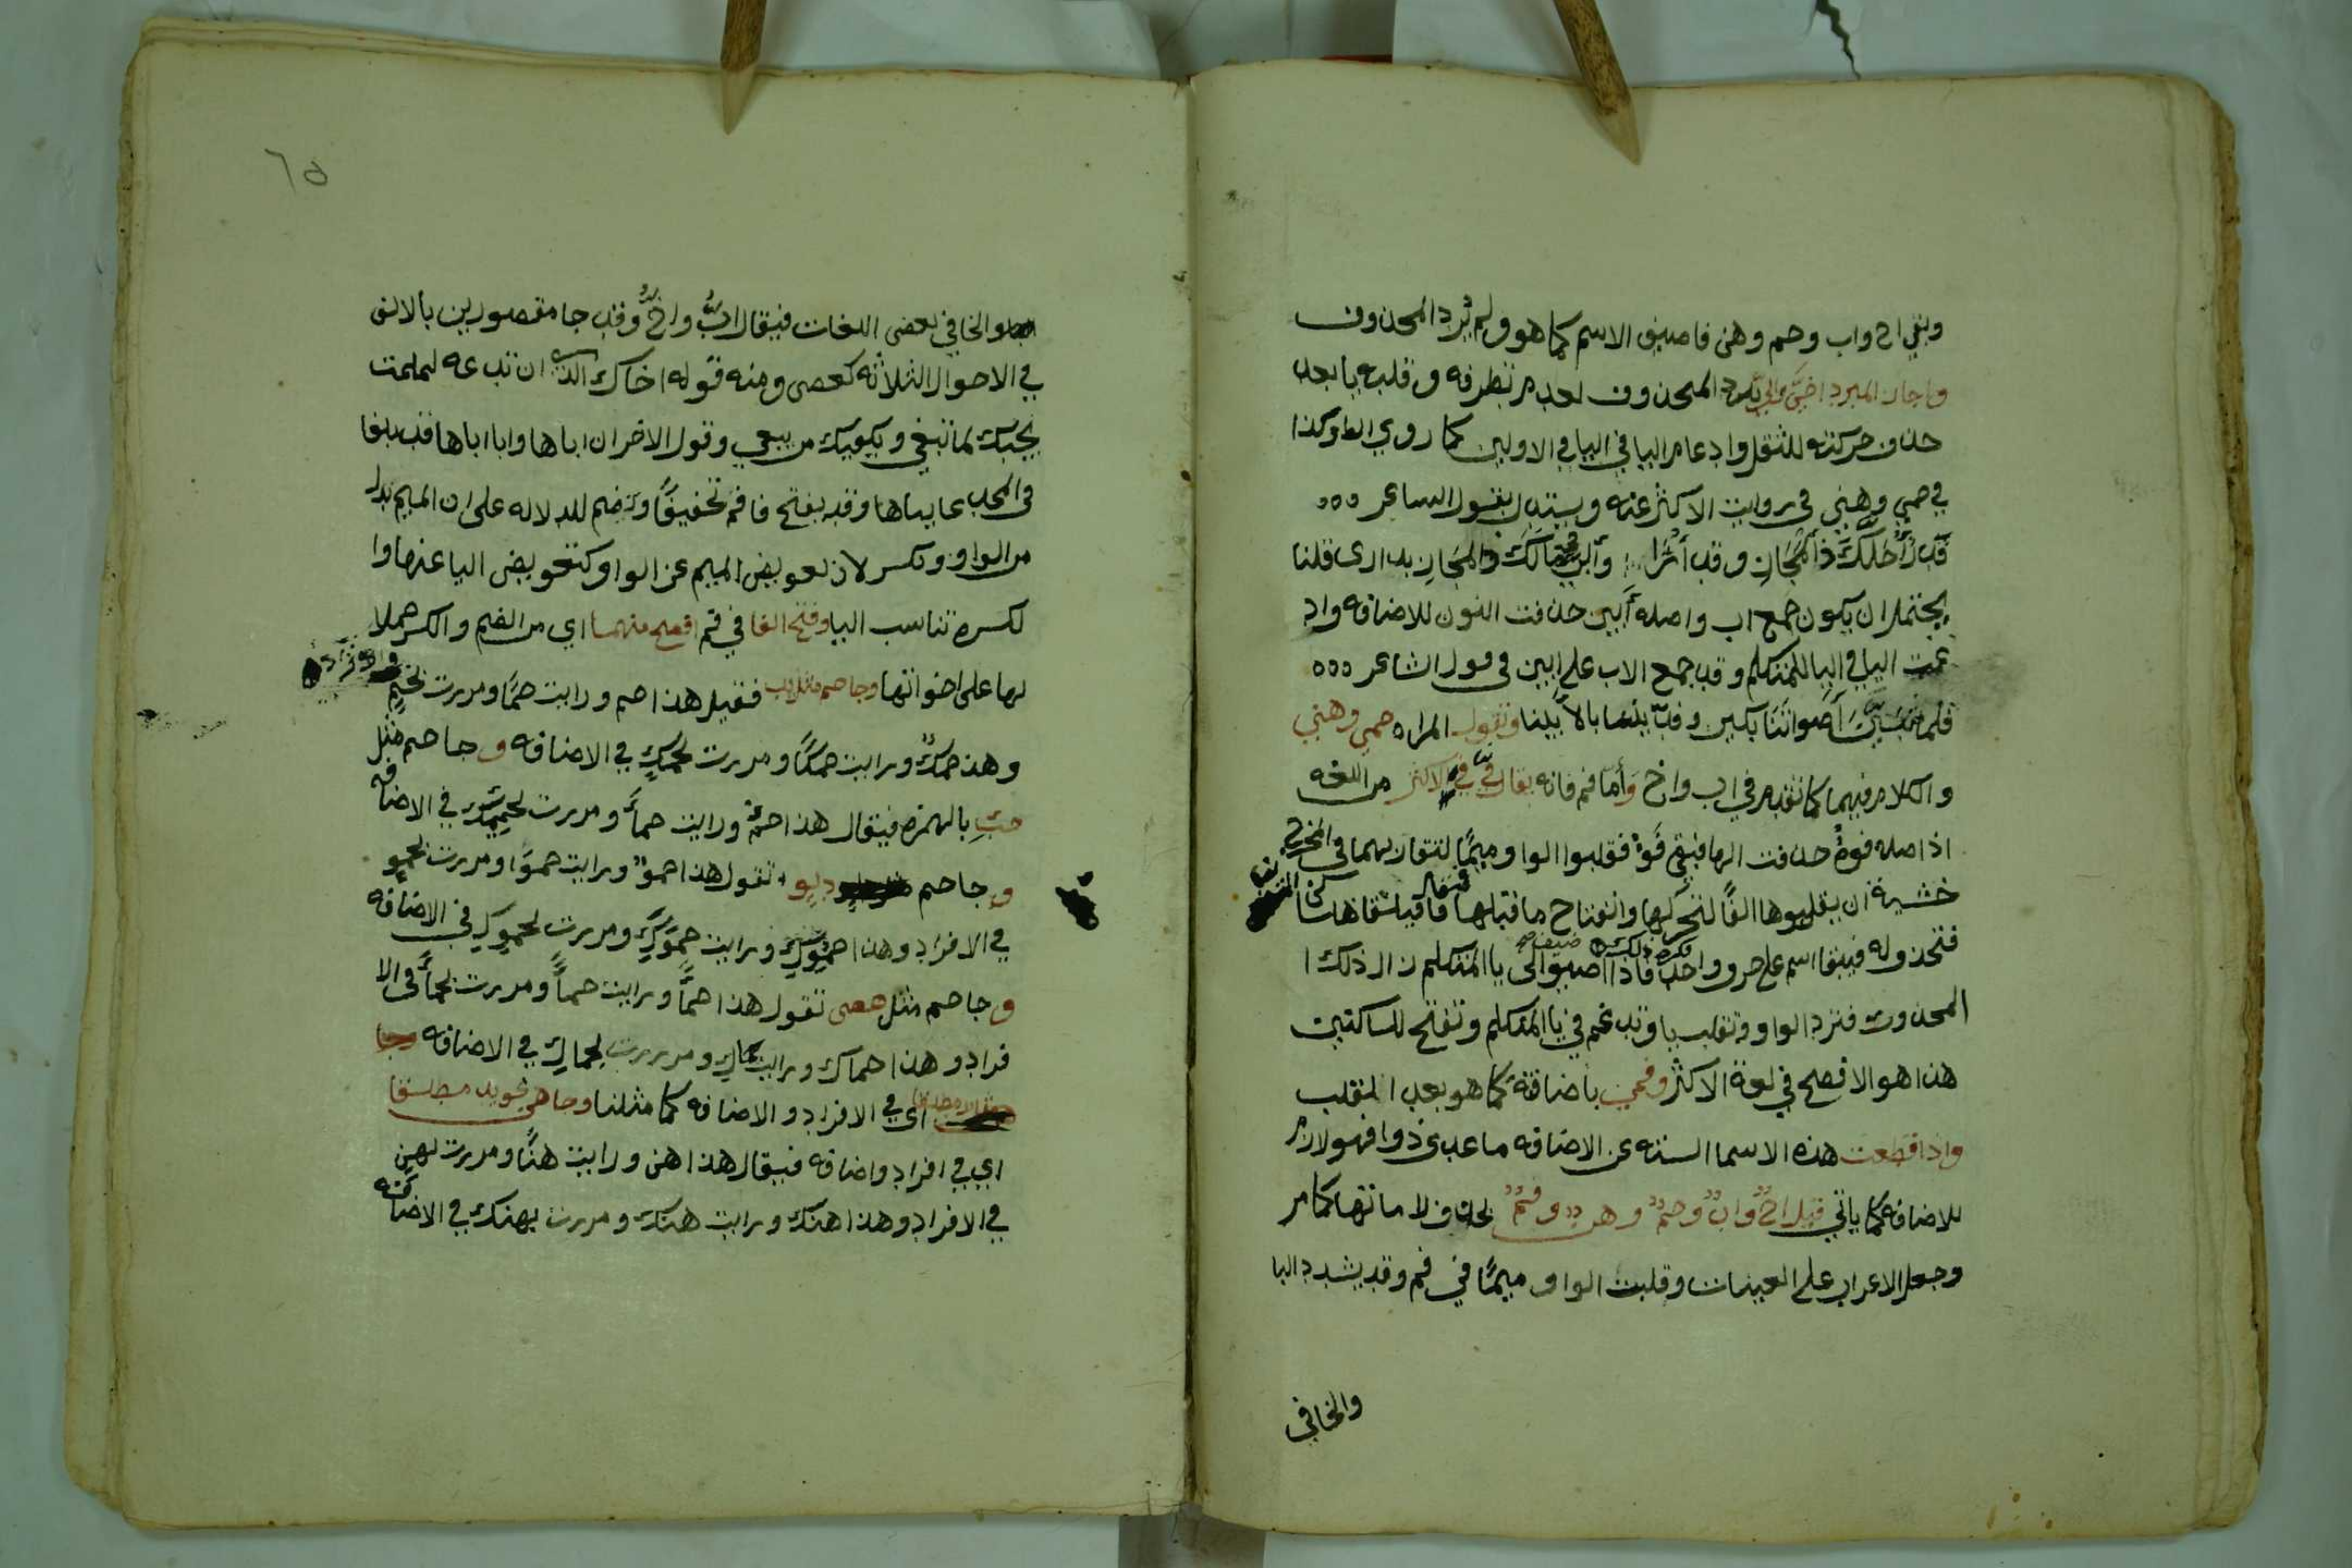 وبقي اخ واب وحم وهن فاصيف الاسم كما هو ولم يرد المحذوف
واجاز المبرد اخيَّ وابيَّ برد المحذوف لعدم تطرفه وقلبه يا بعد
حذف حركته للثقل وادغام اليا في اليا في الاولين كما روي
في حمي وهني في روايت الاكثر عنه ويستدل بقول الشاعر
قدر احلك ذا المجاز وقد ارى وابيَّ مالك ذو المجاز بدار قلنا
يحتمل ان يكون جمع اب واصله ابين حذفت النون للاضافه واد
غمت اليا في اليا للمتكلم وقد جمع الاب على ابين في قول الشاعر
فلما تبين اصواتنا بكين وفديننا بالابينا وتقول المراه حمي وهني
والكلام فيهما كما تقدم في اب واخ واما فم فانه يقال فيَّ في الاكثر من اللغه
اذ اصله فوه حذفت الها فبقي فو فقلبوا الواو ميما لتقاربهما في المخرج
خشية ان يقلبوها الفا لتحركها وانفتاح ما قبلها
فتحذف له فيبقا اسم على حرف واحد فاذا اضيف الى يا المتكلم زال ذلك ا
المحذور فترد الواو وتقلب يا وتدغم في يا المتكلم وتفتح للساكنين
هذا هو الافصح في لغة الاكثر وفمي باضافة كما هو بعد القلب
واذا قطعت هذه الاسما السته عن الاضافه ما عدى ذو فهو لازم
للاضافه كما ياتي قيل اخ واب وحم وهن وفم بحذف لاماتها كما مر
وجعل الاعراب على العينات وقلبت الواو ميما في فم وقد يشدد البا
والخا في
٦٥
والخا في بعض اللغات فيقال ابّ واخّ وقد جا مقصورين بالالف
في الاحوال الثلاثه كعصى ومنه قوله اخاك الذي ان تدعه لملمت
يجبك لما تبغي ويكفيك من يبغي وقول الاخر ان اباها وابا اباها قد بلغا
في المجد غايتاها وقد يفتح فا فم تخفيفا وتضم للدلاله على ان الميم بدل
من الواو وتكسر لان تعويض الميم عن الواو كتعويض اليا عنها وا
لكسره تناسب اليا وفتح الفا في فم افصح منهما اي من الضم والكسر حملا
لها على اخواتها وجا حم مثل يد فقيل هذا حم ورايت حما ومررت بحم
وهذا حمك ورايت حمك ومررت بحمك في الاضافه و جا حم مثل
خبء بالهمزه فيقال هذا حمء ورايت حمأ ومررت بحمئك في الاضافه
و جا حم دلو تقول هذا حمو ورايت حموا ومررت بحمو
في الافراد وهذا حموك ورايت حموك ومررت بحموك في الاضافه
و جا حم مثل عصى تقول هذا حما ورايت حما ومررت بحما في الا
فراد وهذا حماك ورايت حماك ومررت بحماك في الاضافه وجا
اي في الافراد والاضافه كما مثلنا وجا هن نحو يد مطلقا
اي في افراد واضافه فيقال هذا هن ورايت هنا ومررت بهن
في الافراد وهذا هنك ورايت هنك ومررت بهنك في الاضافه